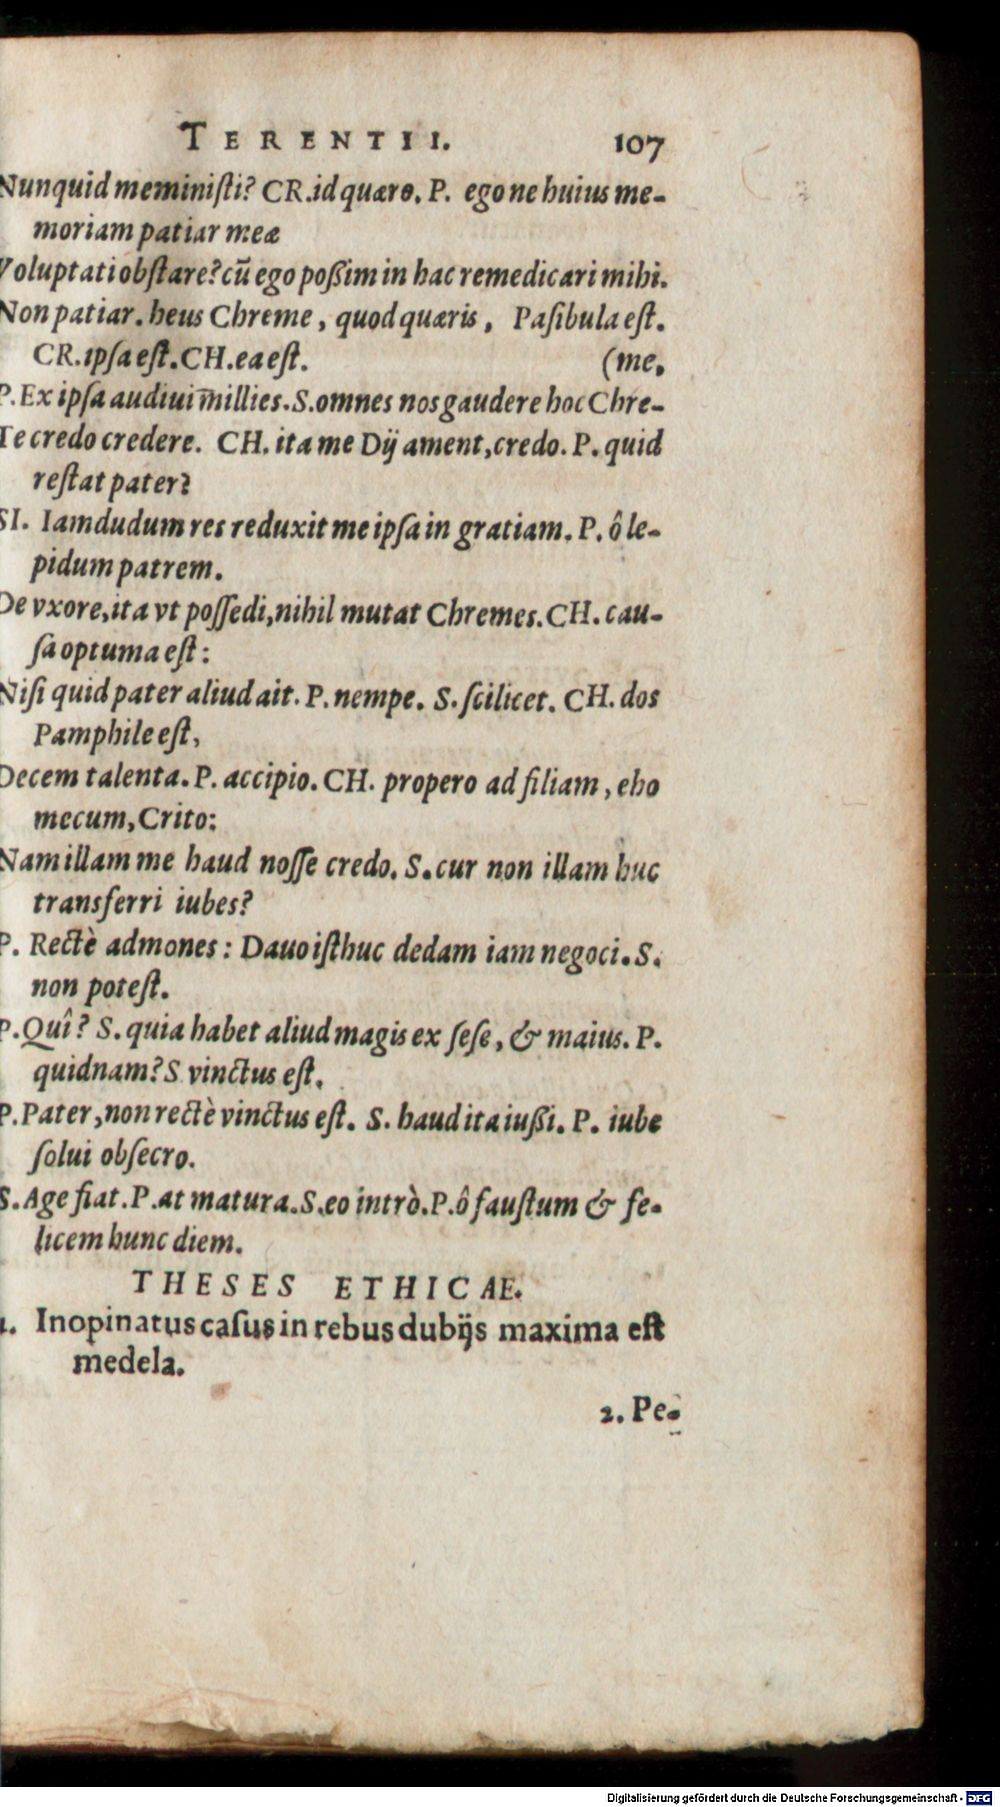 TERENTII. 107
Nunquid meminiſti? CR. id quæro. P. ego ne huius me-
moriam patiar meæ
Voluptati obſtare? cū ego poßim in hac re medicari mihi.
Non patiar. heus Chreme, quod quæris, Paſibula eſt.
CR. ipſa eſt. CH. ea eſt. (me.
P. Ex ipſa audiui millies. S. omnes nos gaudere hoc Chre-
Te credo credere. CH. ita me Dij ament, credo. P. quid
reſtat pater?
SI. Iamdudum res reduxit me ipſa in gratiam. P. ô le-
pidum patrem.
De vxore, ita vt poſſedi, nihil mutat Chremes. CH. cau-
ſa optuma eſt:
Niſi quid pater aliud ait. P. nempe. S. ſcilicet. CH. dos
Pamphile eſt,
Decem talenta. P. accipio. CH. propero ad filiam, eho
mecum, Crito:
Nam illam me haud noſſe credo. S. cur non illam huc
transferri iubes?
P. Rectè admones: Dauo iſthuc dedam iam negoci. S.
non poteſt.
P. Quî? S. quia habet aliud magis ex ſeſe, & maius. P.
quidnam? S vinctus eſt.
P. Pater, non rectè vinctus eſt. S. haud ita iußi. P. iube
ſolui obſecro.
S. Age fiat. P. at matura. S. eo intrò. P. ô fauſtum & fe-
licem hunc diem.
THESES ETHICAE.
1. Inopinatus caſus in rebus dubijs maxima eſt
medela.
2. Pe-
Digitalisierung gefördert durch die Deutsche Forschungsgemeinschaft - DFG